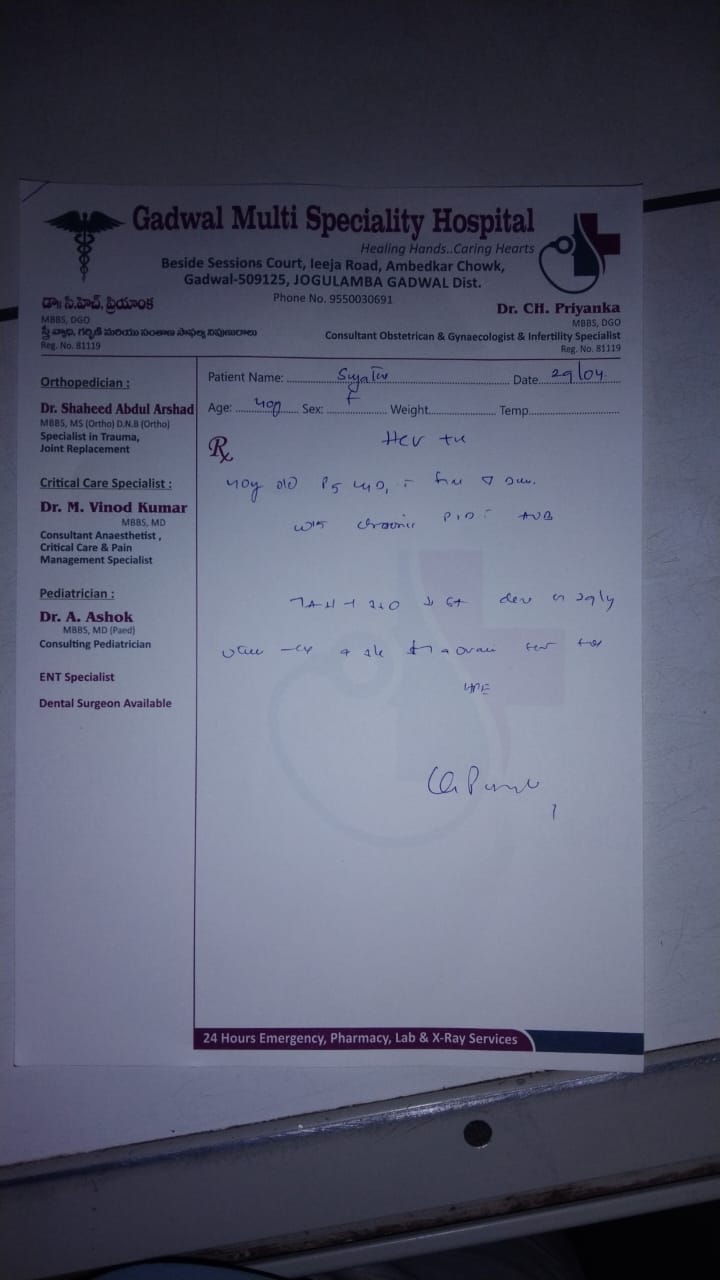 Gadwal Multi Speciality Hospital
Healing Hands..Caring Hearts
Beside Sessions Court, Ieeja Road, Ambedkar Chowk,
Gadwal-509125, JOGULAMBA GADWAL Dist.
Phone No. 9550030691
డా॥ సి.హెచ్. ప్రియాంక
MBBS, DGO
స్త్రీ వ్యాధి, గర్భిణి మరియు సంతాన సాఫల్య నిపుణురాలు
Reg. No. 81119
Dr. CH. Priyanka
MBBS, DGO
Consultant Obstetrician & Gynaecologist & Infertility Specialist
Reg. No. 81119
Orthopedician :
Dr. Shaheed Abdul Arshad
MBBS, MS (Ortho) D.N.B (Ortho)
Specialist in Trauma,
Joint Replacement
Critical Care Specialist :
Dr. M. Vinod Kumar
MBBS, MD
Consultant Anaesthetist ,
Critical Care & Pain
Management Specialist
Pediatrician :
Dr. A. Ashok
MBBS, MD (Paed)
Consulting Pediatrician
ENT Specialist
Dental Surgeon Available
Patient Name: Date 29/04
Age: 40y Sex: F Weight Temp
Rx
HCV
40y old P5
chronic PID AUB
TAH + BSO on 29/4
HPE
24 Hours Emergency, Pharmacy, Lab & X-Ray Services